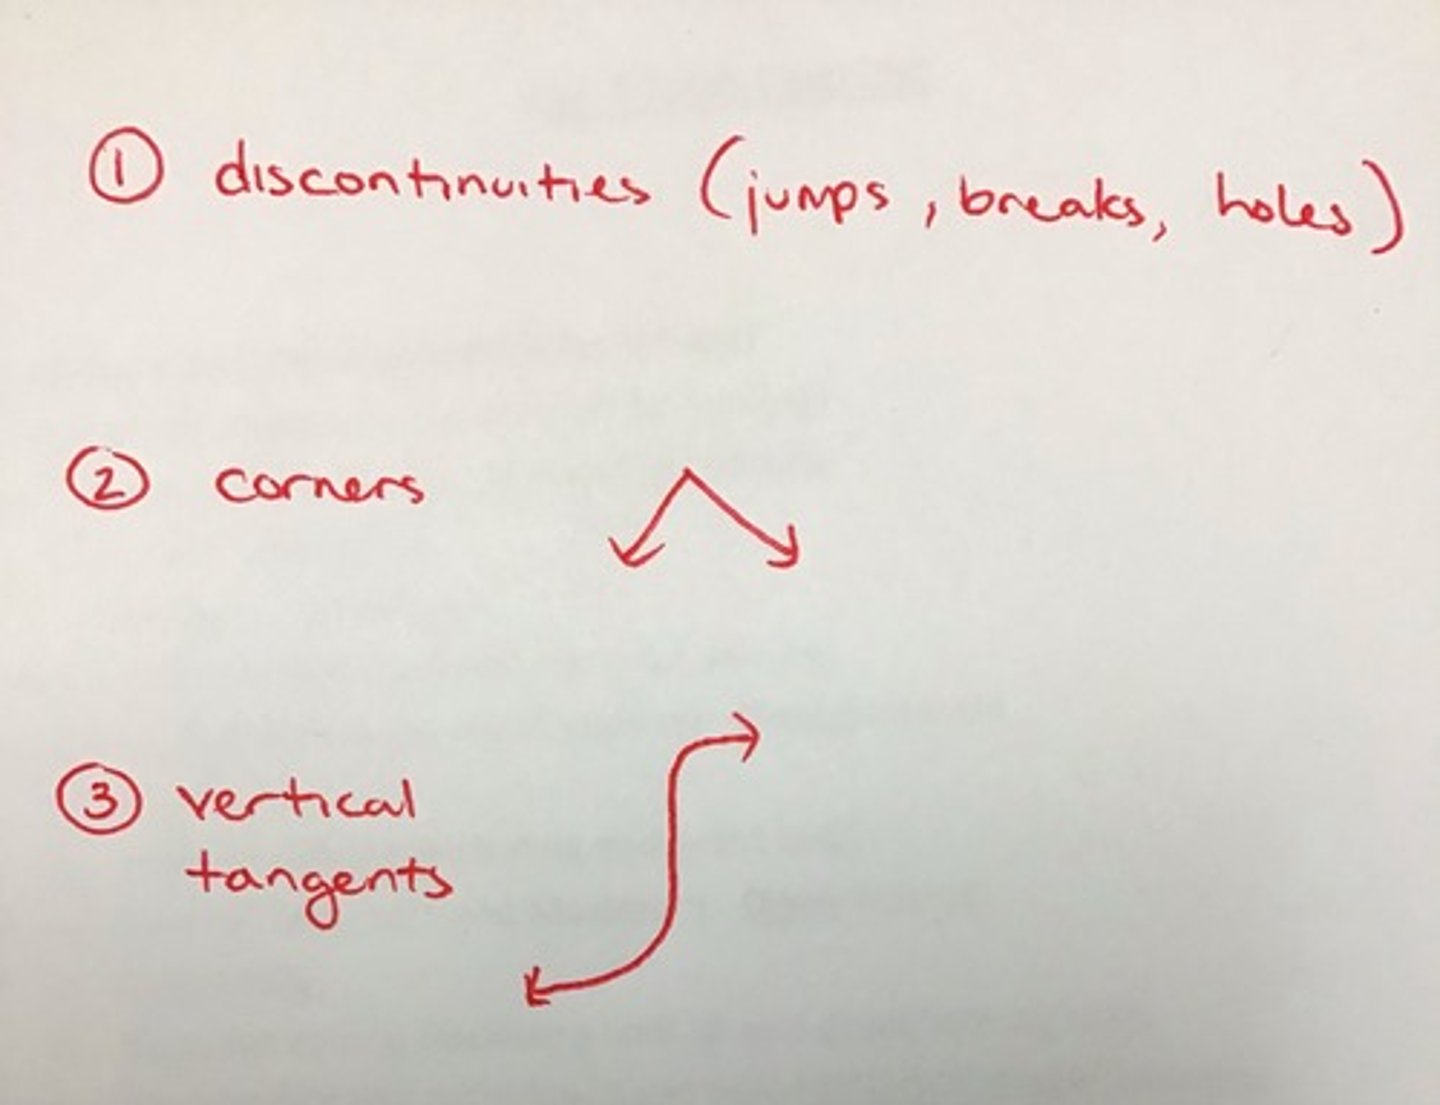 ① discontinuities (jumps, breaks, holes)
② corners
③ vertical
tangents